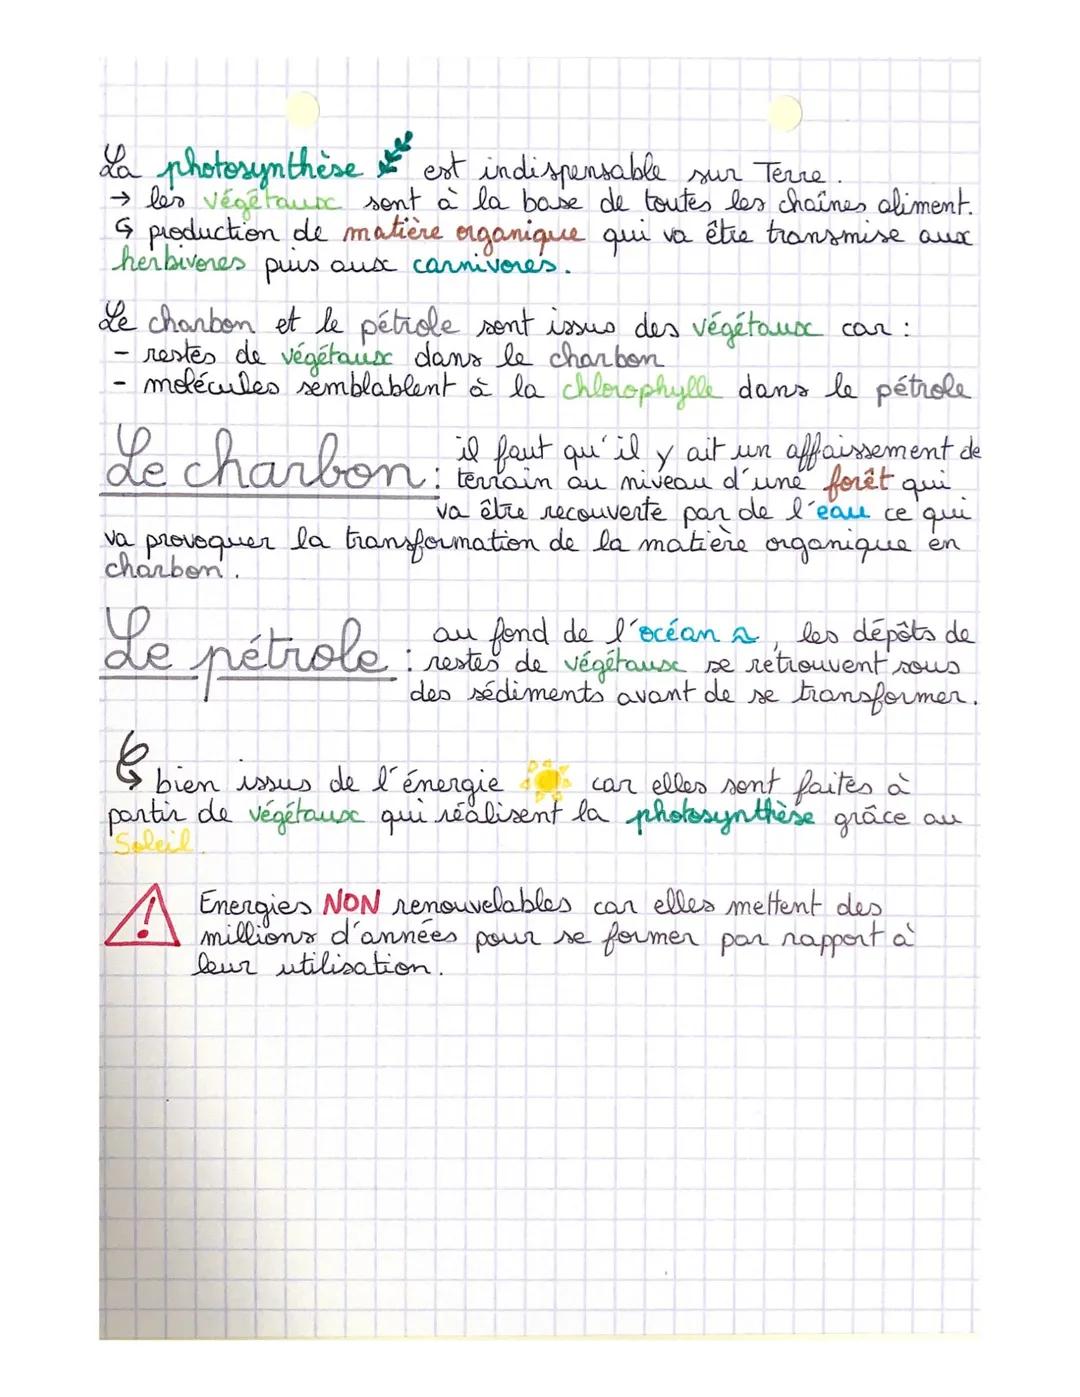 La photosynthèse est indispensable sur Terre.
→ les végétaux sont à la base de toutes les chaînes aliment.
↳ production de matière organique qui va être transmise aux
herbivores puis aux carnivores.
Le charbon et le pétrole sont issus des végétaux car :
- restes de végétaux dans le charbon
- molécules semblablent à la chlorophylle dans le pétrole
Le charbon : il faut qu'il y ait un affaissement de
terrain au niveau d'une forêt qui
va être recouverte par de l'eau ce qui
va provoquer la transformation de la matière organique en
charbon.
Le pétrole : au fond de l'océan, les dépôts de
restes de végétaux se retrouvent sous
des sédiments avant de se transformer.
↳ bien issus de l'énergie car elles sont faites à
partir de végétaux qui réalisent la photosynthèse grâce au
Soleil.
! Energies NON renouvelables car elles mettent des
millions d'années pour se former par rapport à
leur utilisation.